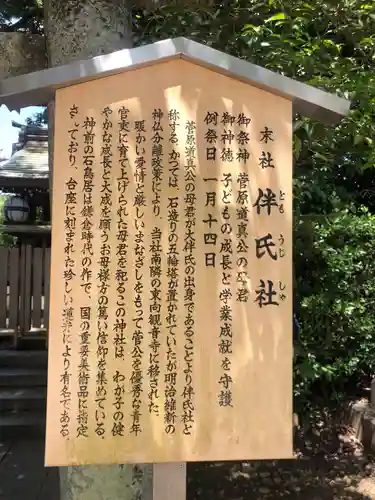 末社 伴氏社
とも うじ しゃ
御祭神 菅原道真公の母君
御神徳 子どもの成長と学業成就を守護
例祭日 一月十四日
菅原道真公の母君が大伴氏の出身であることより伴氏社と
称する。かつては、石造りの五輪塔が置かれていたが明治維新の
神仏分離政策により、当社南隣の東向観音寺に移された。
暖かい愛情と厳しいまなざしをもって菅公を優秀な青年
官吏に育て上げられた母君を祀るこの神社は、わが子の健
やかな成長と大成を願うお母様方の篤い信仰を集めている。
神前の石鳥居は鎌倉時代の作で、国の重要美術品に指定
されており、台座に刻まれた珍しい蓮弁により有名である。